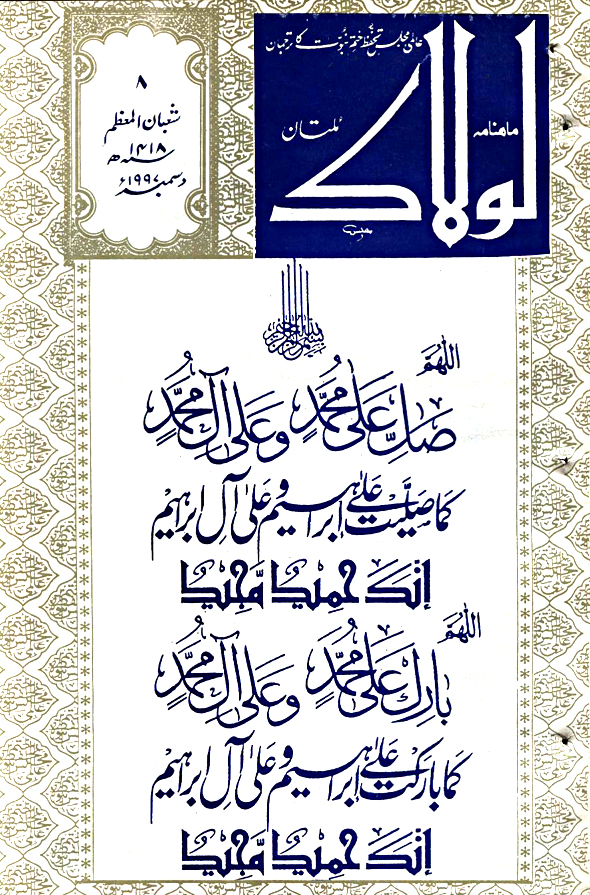 عالمی مجلس تحفظ ختم نبوت کا ترجمان
ماهنامه
لولاک
ملتان
۸
شعبان المعظم
۱۴۱۸ھ
دسمبر ۱۹۹۷ء
بسم الله الرحمن الرحيم
اللّٰهُمَّ
صَلِّ عَلٰى مُحَمَّدٍ وَعَلٰى آلِ مُحَمَّدٍ
كَمَا صَلَّيْتَ عَلٰى إِبْرَاهِيمَ وَعَلٰى آلِ إِبْرَاهِيمَ
إِنَّكَ حَمِيدٌ مَّجِيدٌ
اللّٰهُمَّ
بَارِكْ عَلٰى مُحَمَّدٍ وَعَلٰى آلِ مُحَمَّدٍ
كَمَا بَارَكْتَ عَلٰى إِبْرَاهِيمَ وَعَلٰى آلِ إِبْرَاهِيمَ
إِنَّكَ حَمِيدٌ مَّجِيدٌ